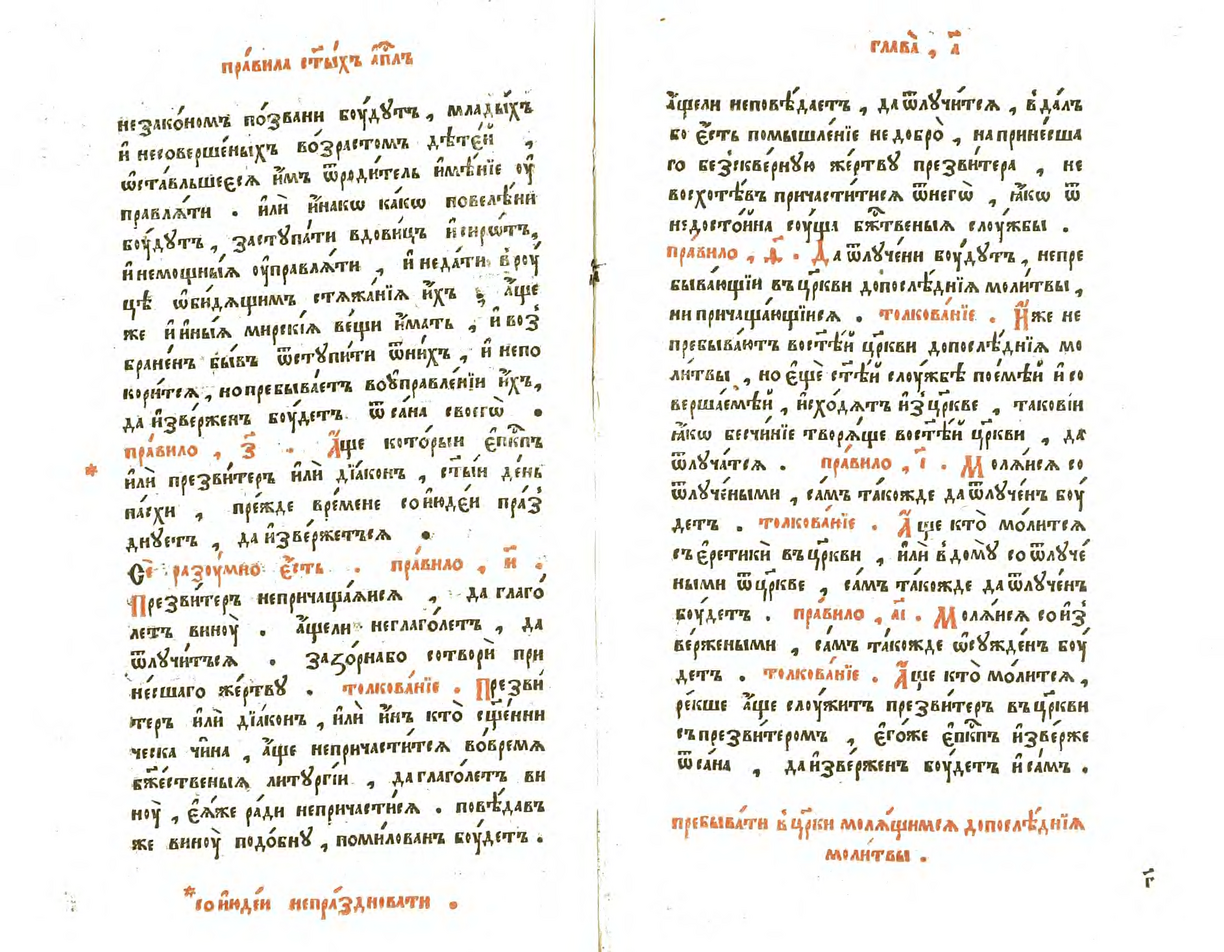 пра́вила ст҃ы́хъ а҆п҃лъ
незако́номъ по́звани боу́дутъ , млады́хъ
и҆ несовершє́ныхъ во́зрастомъ дѣте́й ,
ѡ҆ста́вльшеєсѧ и҆̀мъ ѿроди́тель имѣ́нїе оу҆
правлѧ́ти . и҆лѝ и҆́накѡ ка́кѡ повелѣ́ни
боу́дутъ , заступа́ти вдови́цъ и҆си́рѡтъ,
и҆немощны́ѧ оу҆правлѧ́ти , и҆неда́ти в̾роу
цѣ̀ ѡ҆би́дѧщимъ стѧжа́нїѧ и҆́хъ , а҆́ще
же и҆ и҆ны́ѧ мирскі́ѧ ве́щи и҆́мать , и҆ воз̾
бране́нъ бы́въ ѿступи́ти ѿни́хъ , и҆ непо
кори́тсѧ , нопребыва́етъ воу҆правле́нїи и҆́хъ,
да и҆зве́рженъ боу́детъ ѿ са́на своегѡ̀ .
пра́вило , з҃ . А҆́ще кото́рыи є҆пи҃кпъ
и҆лѝ презви́теръ и҆лѝ дїа́конъ , ст҃ы́и де́нь
па́схи , пре́жде вре́мене сои҆юде́и пра́з̾
днуетъ , да и҆зве́ржетъсѧ .
Сѐ разоу́мно є҆́сть . пра́вило , и҃ .
Презви́теръ непричаща́ѧисѧ , да глаго́
летъ виноу̀ . а҆́щели неглаго́летъ , да
ѿлучи́тъсѧ . заzо́рнабо сотворѝ при
не́сшаго же́ртву . толкова́нїе . Презви́
теръ и҆лѝ дїа́конъ , и҆лѝ и҆́нъ кто̀ сщ҃е́нни
ческа чи́на , а҆́ще неприча́стѝтсѧ во́времѧ
бж҃е́ственыѧ литургі́и , да глаго́летъ ви
ноу̀ , є҆ѧ́же ра́ди неприча́стисѧ . повѣ́давъ
же виноу̀ подо́бну , поми́лованъ боу́детъ .
* сои҆юде́и непра́здновати .
глава̀ , а҃
А҆́щели неповѣ́даетъ , да ѿлучи́тсѧ , в̾да́лъ
бо є҆́сть помышле́нїе недобро̀ , напринє́сша
го без̾скве́рную же́ртву презви́тера , не
восхотѣ́въ причасти́тисѧ ѿнегѡ̀ , ꙗ҆́кѡ ѿ
недосто́йна соу́ща бж҃твеныѧ слоу́жбы .
пра́вило , ѳ҃ . Да ѿлуче́ни боу́дутъ , непре
быва́ющїи въцр҃кви допослѣ́днїѧ моли́твы ,
ни причаща́ющїисѧ . толкова́нїе . И҆́же не
пребыва́ютъ вост҃ѣ́й цр҃кви допослѣ́днїѧ мо
ли́твы , но є҆щѐ ст҃ѣ́й слоу́жбѣ поє́мѣй и҆ со
верша́ємѣй , и҆схо́дѧтъ и҆з̾цр҃кве , такові́и
ꙗ҆́кѡ бесчи́нїе творѧ́ще вост҃ѣ́й цр҃кви , да
ѿлуча́тсѧ . пра́вило , і҃ . Молѧ́исѧ со
ѿлуче́ными , са́мъ та́кожде да ѿлуче́нъ боу́
детъ . толкова́нїе . А҆́ще кто̀ мо́литсѧ
съ є҆ретикѝ въцр҃кви , и҆лѝ в̾дому́ со ѿлуче́
ными ѿ цр҃кве , са́мъ та́кожде да ѿлуче́нъ
боу́детъ . пра́вило , а҃і . Молѧ́исѧ сои҆з̾
ве́ржеными , са́мъ та́кожде ѡ҆сужде́нъ боу́
детъ . толкова́нїе . А҆́ще кто̀ мо́литсѧ ,
ре́кше а҆́ще слоу́житъ презви́теръ въцр҃кви
съпрезви́теромъ , є҆го́же є҆пи҃кпъ и҆зве́рже
ѿ са́на , да и҆зве́рженъ боу́детъ и҆ са́мъ .
пребыва́ти в̾цр҃ки молѧ́щимсѧ допослѣ́днїѧ
моли́твы .
г҃